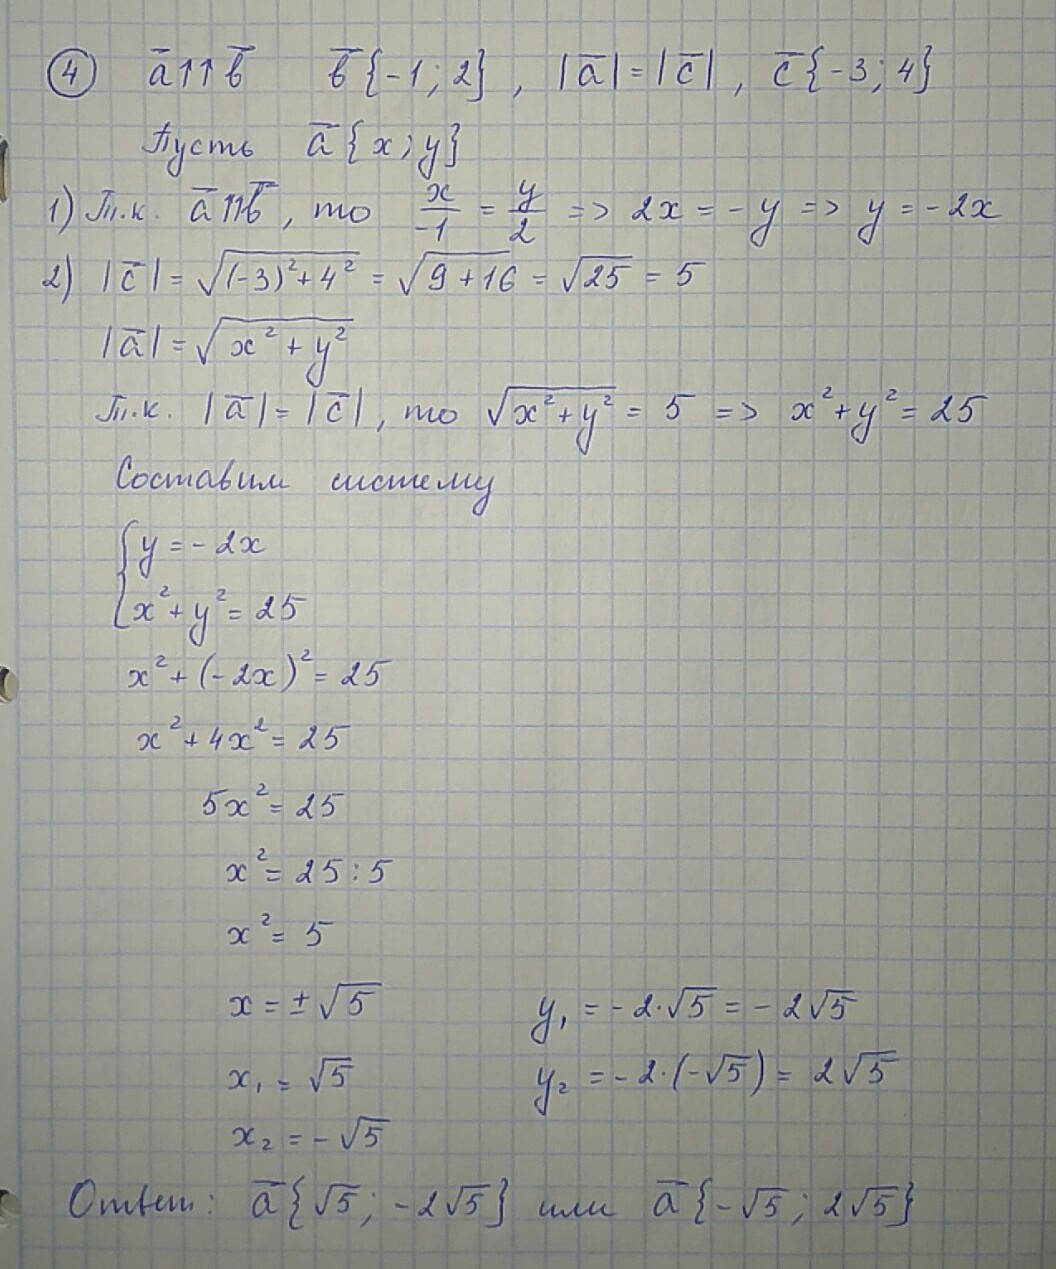 ④ a̅↑↑b̅ b̅{-1; 2}, |a̅| = |c̅|, c̅{-3; 4}
Пусть a̅{x; y}
1) Т.к. a̅↑↑b̅, то x/-1 = y/2 => 2x = -y => y = -2x
2) |c̅| = √((-3)²+4²) = √(9+16) = √25 = 5
|a̅| = √(x²+y²)
Т.к. |a̅| = |c̅|, то √(x²+y²) = 5 => x²+y² = 25
Составим систему
{y = -2x
x²+y² = 25
x²+(-2x)² = 25
x²+4x² = 25
5x² = 25
x² = 25:5
x² = 5
x = ±√5 y₁ = -2·√5 = -2√5
x₁ = √5 y₂ = -2·(-√5) = 2√5
x₂ = -√5
Ответ: a̅{√5; -2√5} или a̅{-√5; 2√5}